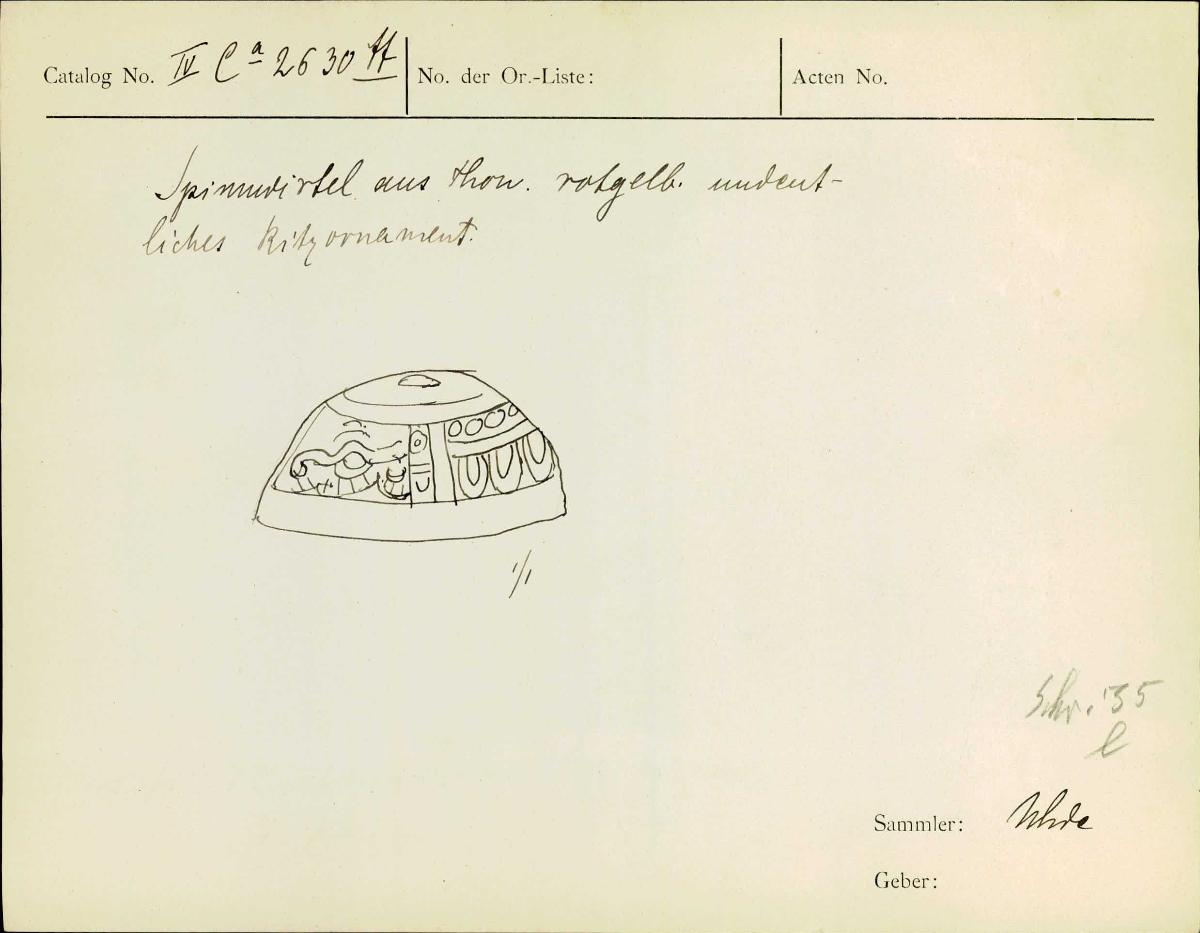 Catalog No. IV Ca 2630 tt No. der Or.-Liste: Acten No.
Spinnwirtel aus Thon. rotgelb. undeut-
liches Ritzornament.
1/1
Schr. '35
l
Sammler: Uhde
Geber: